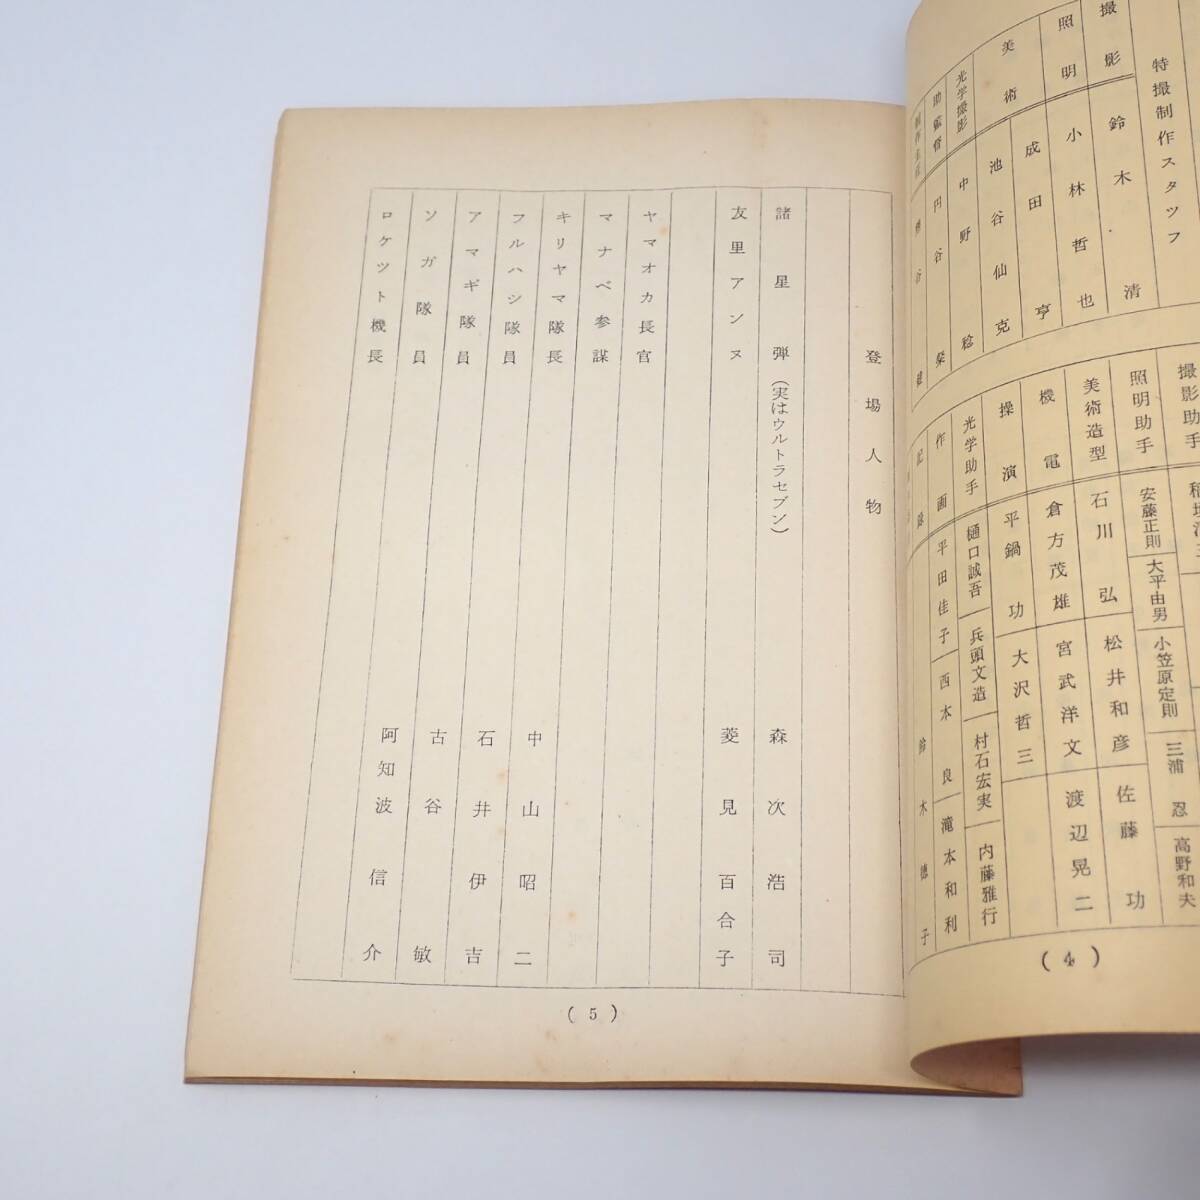 特撮制作スタツフ
撮影　鈴木　清
照明　小林哲也
美術　成田　亨
池谷仙克
光学撮影　中野　稔
助監督　円谷　粲
撮影助手
照明助手　安藤正則　大平由男　小笠原定則　三浦　忍　高野和夫
美術造型　石川　弘　松井和彦　佐藤　功
機電　倉方茂雄　宮武洋文　渡辺晃二
操演　平鍋　功　大沢哲三
光学助手　樋口誠吾　兵頭文造　村石宏実　内藤雅行
作画　平田佳子　西本　良　滝本和利
記録　鈴木徳子
(4)
登場人物
諸星　弾（実はウルトラセブン）　森次浩司
友里アンヌ　菱見百合子
ヤマオカ長官
マナベ参謀
キリヤマ隊長　中山昭二
フルハシ隊員　石井伊吉
アマギ隊員　古谷　敏
ソガ隊員　阿知波信介
ロケツト機長
(5)